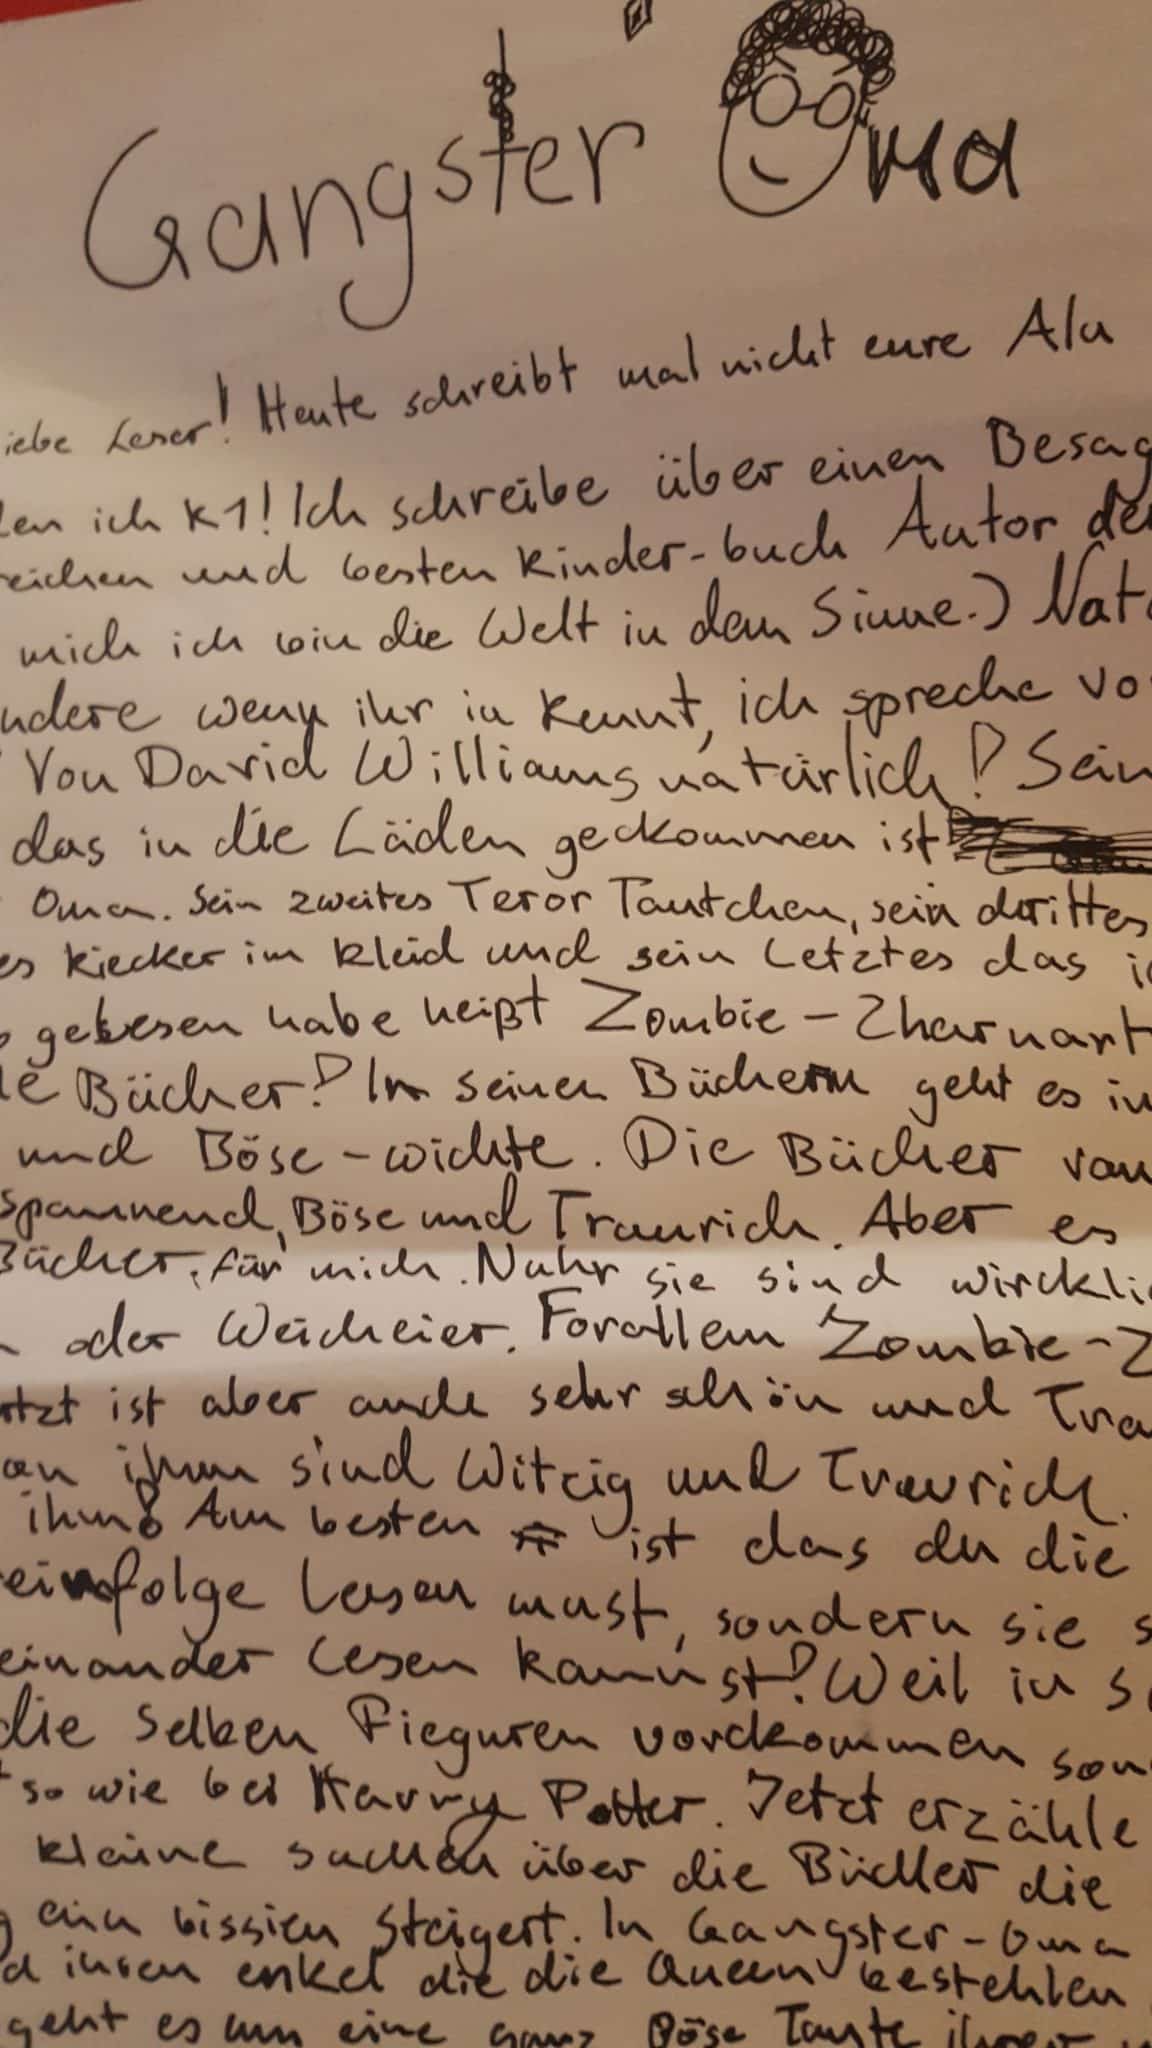 Gangster Oma
iebe Leser! Heute schreibt mal nicht eure Alu
ich K1! Ich schreibe über einen Besag
reichen und besten Kinder-buch Autor der
mich ich bin die Welt in dem Sinne.) Nat
ndere wenn ihr in kennt, ich spreche vo
Von David Williams natürlich! Sein
das in die Läden geckommen ist
Oma. Sein zweites Teror Tantchen, sein drittes
es kiecker im kleid und sein Letztes das i
gelesen habe heißt Zombie-Zharnart
le Bücher! In seinen Büchern geht es i
und Böse-wichte. Die Bücher von
spannend, Böse und Traurich. Aber es
Bücher, für mich. Nuhr sie sind wircklic
oder Weicheier. Forallem Zombie-Z
rtzt ist aber auch sehr schön und Tra
on ihm sind Witzig und Traurich.
ihm! Am besten ist das du die
einfolge lesen must, sondern sie s
einander lesen kannst! Weil in s
die selben Fieguren vorckommen son
so wie bei Harry Potter. Jetzt erzähle
kleine sachen über die Bücher die
g ein bissien steigert. In Gangster-Oma
d ihren enkel die die Queen bestehlen
geht es um eine ganz Böse Tante ihrer